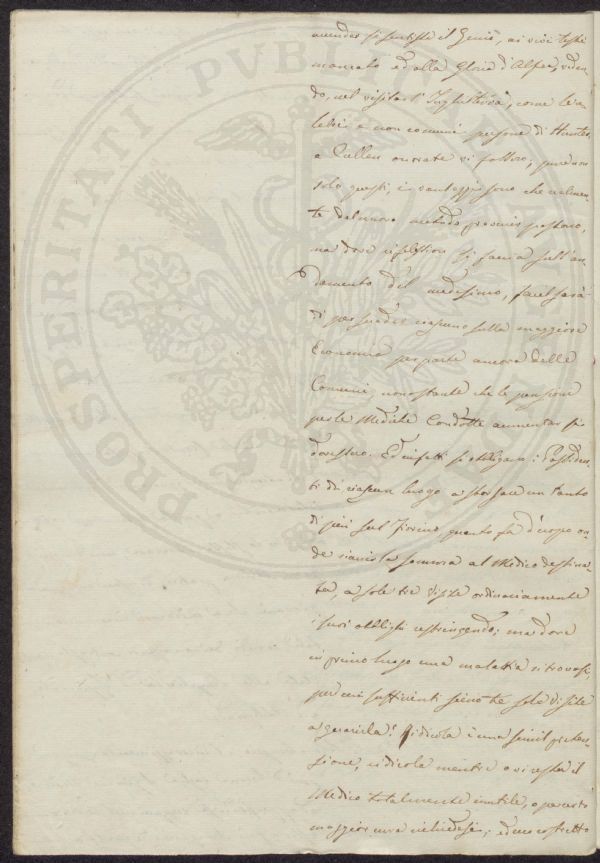 PROSPERITATI PUBLICAE AUGENDAE
accender si sentisse il Genio, ai vivi testi
mancato ed alla Gloria d'Alfea, viden
do, nel visitar l'Inghilterra, come le ce
lebri e non comuni persone di Hunter
e Cullen onorate vi fossero; pure non
solo questi, i vantaggi sono che realmen
te dal nuovo metodo provenir possono,
ma dove riflessione si faccia sull'an
damento del medesimo, facil sarà
di persuader ciascuno sulla maggiore
Economia per parte ancora delle
Comuni, nonostante che le pensioni
per le Mediche Condotte aumentar si
dovessero. Ed infatti si obbligano i Possiden
ti di ciascun luogo a sborsare un tanto
di più sul Fiorino quanto fa d'uopo on
de riunir la somma al Medico destina
ta, a sole tre visite ordinariamente
i suoi obblighi restringendo; ma dove
in primo luogo una malattia si trovasse,
per cui sufficienti sieno tre sole visite
a guarirla? Ridicola è una simil preten
sione, ridicola mentre o vi resta il
Medico totalmente inutile, o per certo
maggior cura richiedesi; ed uno costretto